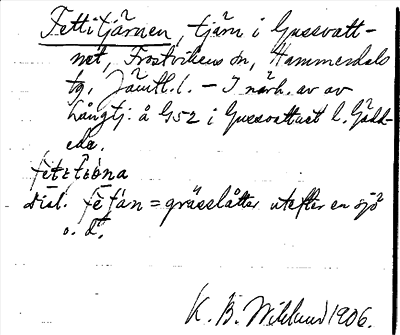 Fettitjärnen, tjärn i Gussvatt-
net, Frostvikens sn, Hammerdals
tg, Jämtl. l. – I närh. av av
Långtj. å G52 i Gussvattnet l. Gädd-
ede.
dial. = grässlåtter utefter en sjö
o. d.
K. B. Wiklund 1906.